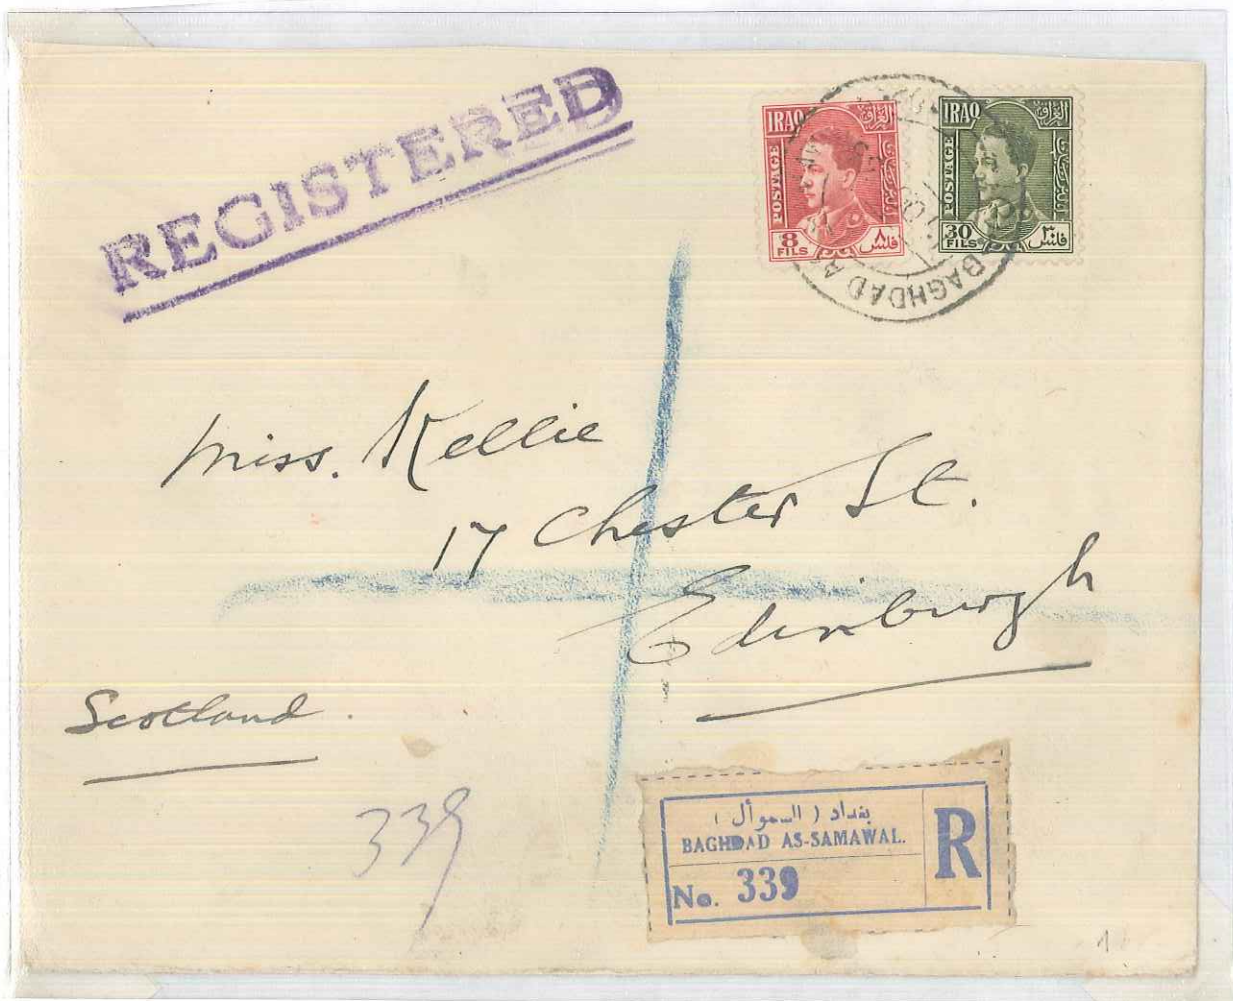 REGISTERED
IRAQ العراق
POSTAGE
8 ٨
FILS فلس
IRAQ العراق
POSTAGE
30 ٣٠
FILS فلس
BAGHDAD AS
Miss. Kellie
17 Chester St.
Edinburgh
Scotland.
339
بغداد ( السموأل )
BAGHDAD AS-SAMAWAL.
R
No. 339
1